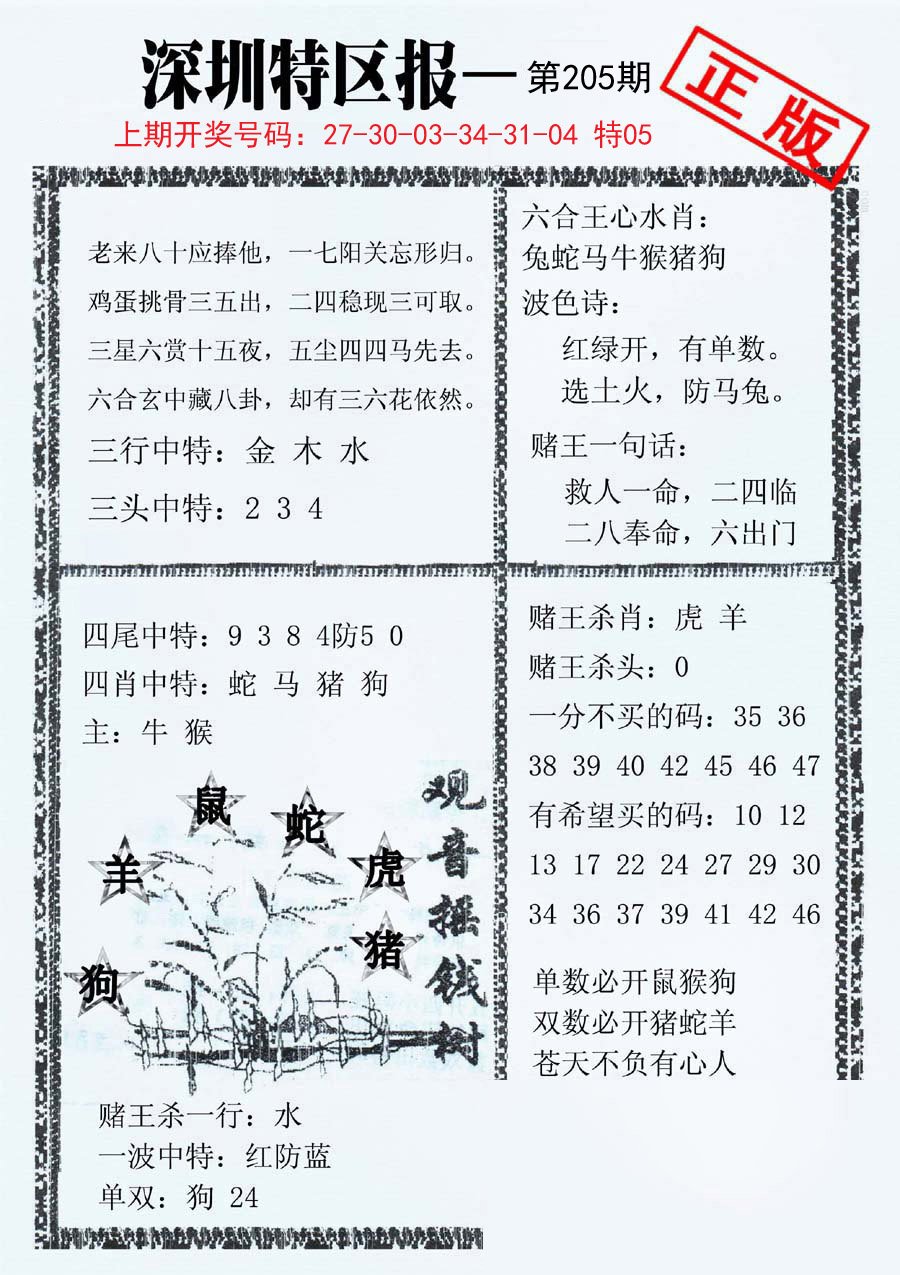 深圳特区报—第205期
正版
上期开奖号码：27-30-03-34-31-04 特05
老来八十应捧他，一七阳关忘形归。
鸡蛋挑骨三五出，二四稳现三可取。
三星六赏十五夜，五尘四四马先去。
六合玄中藏八卦，却有三六花依然。
三行中特：金 木 水
三头中特：2 3 4
六合王心水肖：
兔蛇马牛猴猪狗
波色诗：
红绿开，有单数。
选土火，防马兔。
赌王一句话：
救人一命，二四临
二八奉命，六出门
四尾中特：9 3 8 4防5 0
四肖中特：蛇 马 猪 狗
主：牛 猴
鼠
蛇
羊
虎
猪
狗
观音摇钱树
赌王杀一行：水
一波中特：红防蓝
单双：狗 24
赌王杀肖：虎 羊
赌王杀头：0
一分不买的码：35 36
38 39 40 42 45 46 47
有希望买的码：10 12
13 17 22 24 27 29 30
34 36 37 39 41 42 46
单数必开鼠猴狗
双数必开猪蛇羊
苍天不负有心人